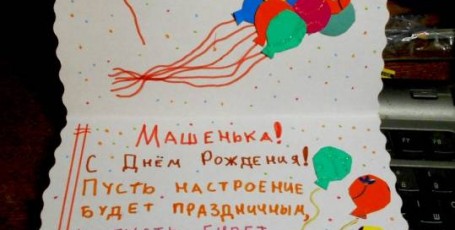 Машенька!
С Днём Рождения!
Пусть настроение
будет праздничным,
будет